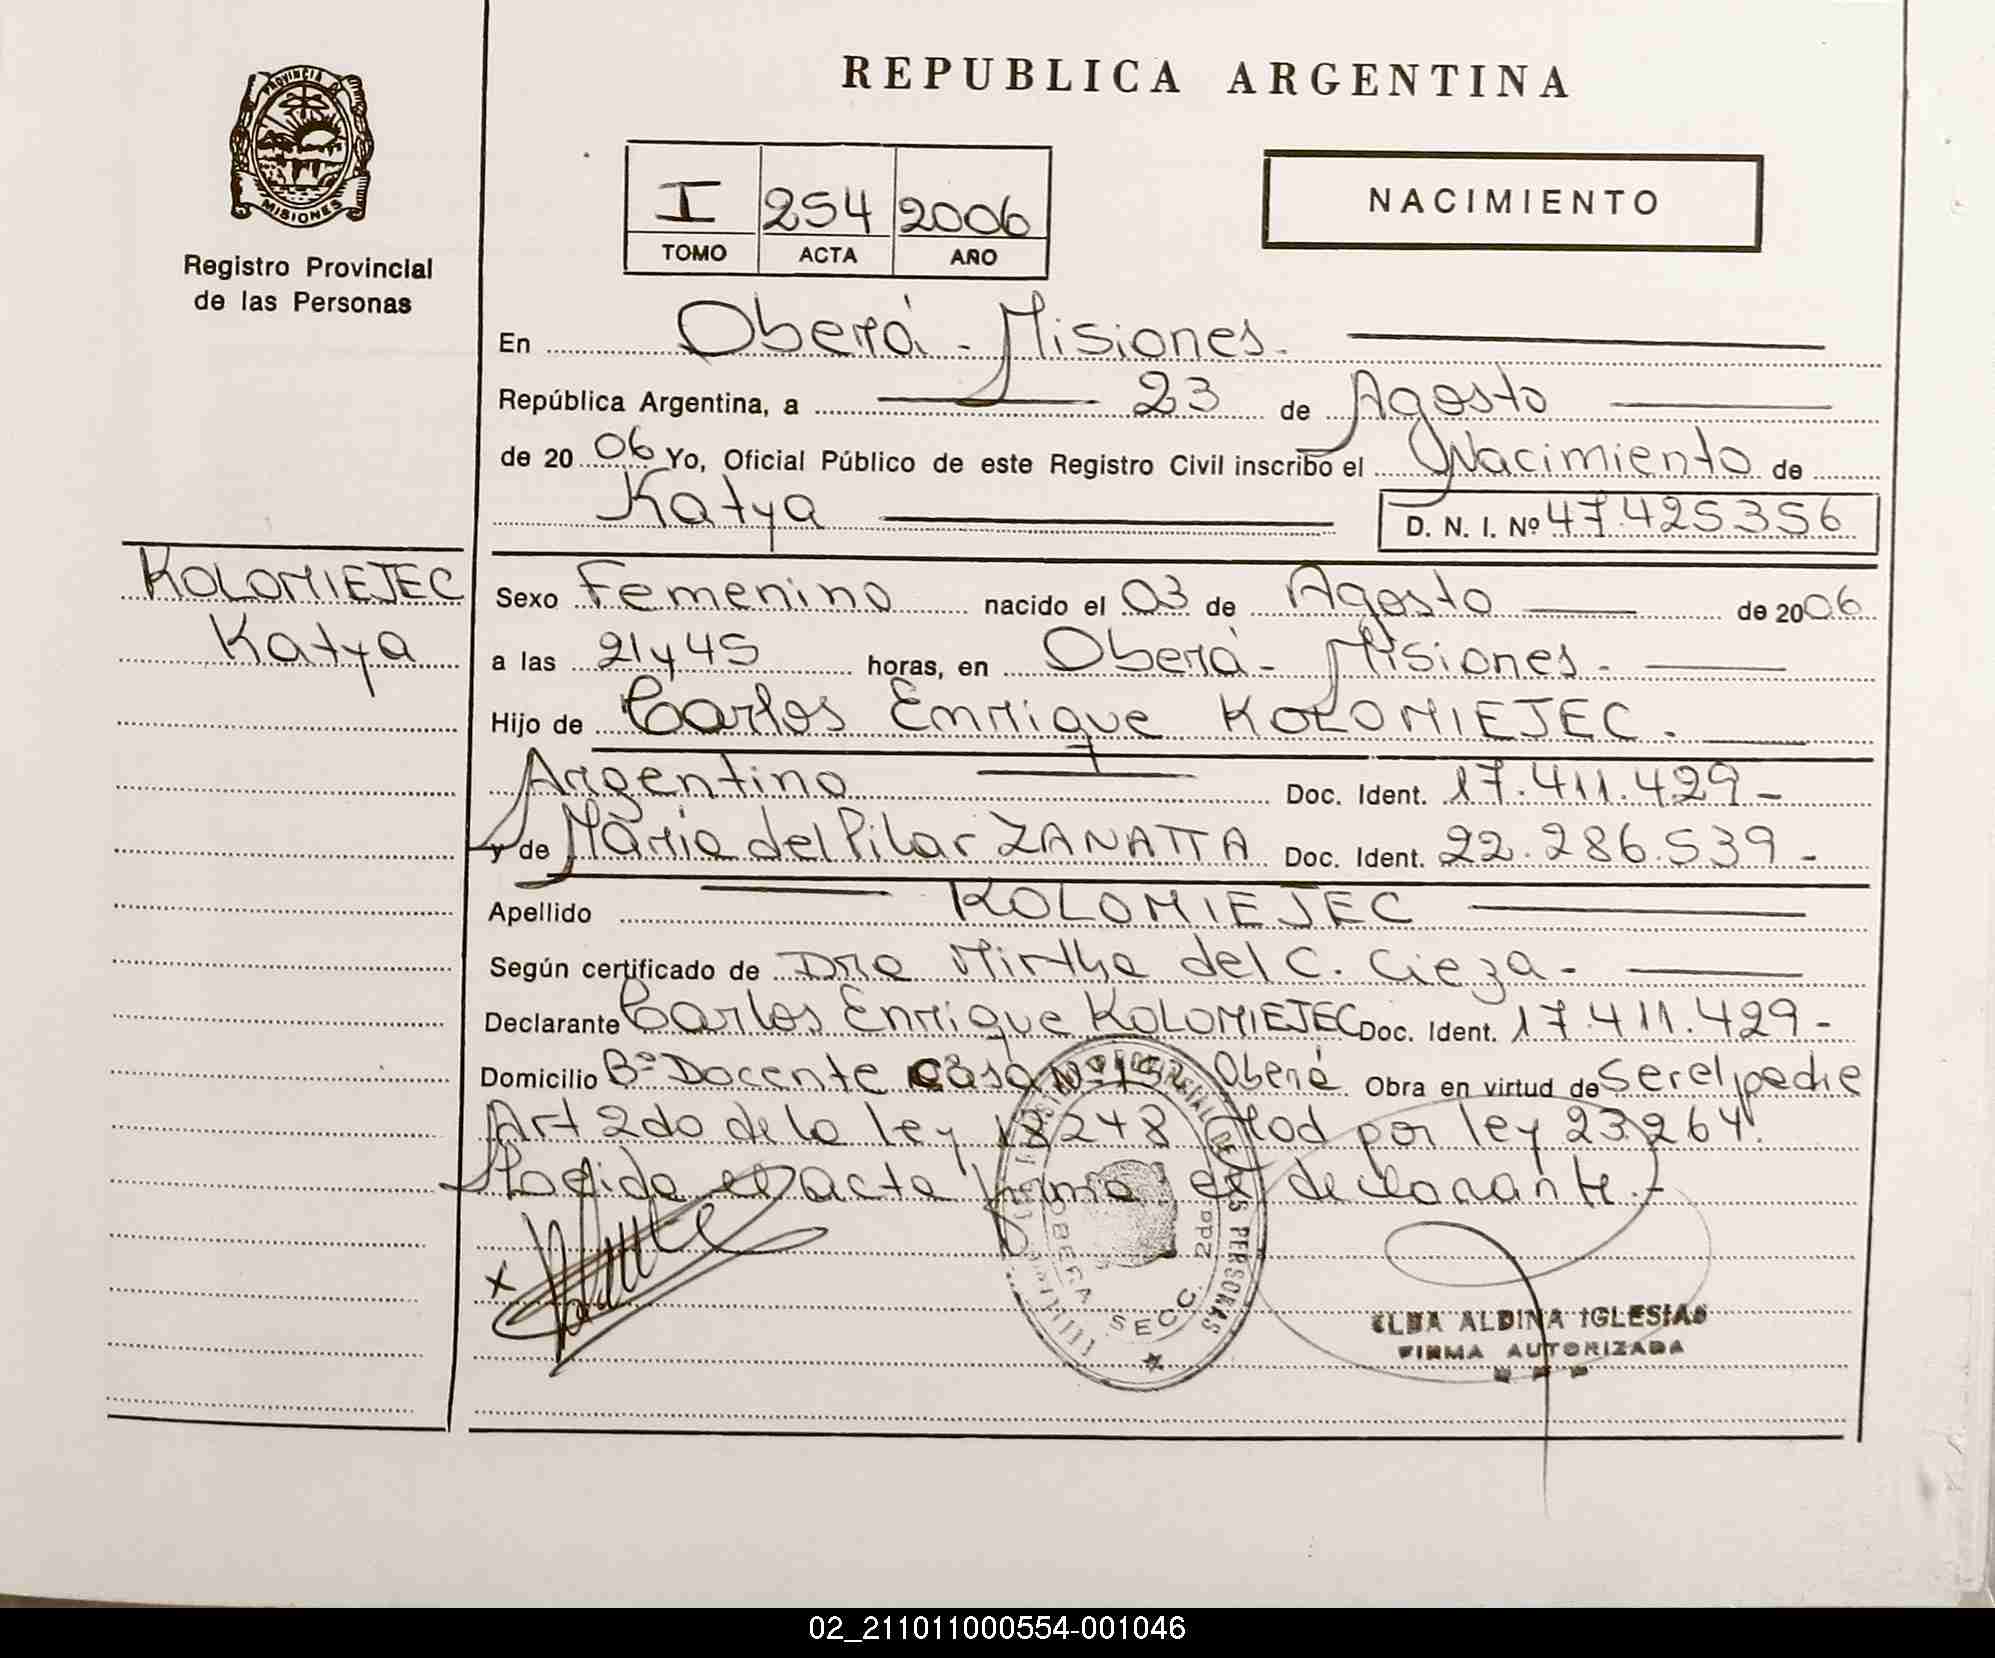 REPUBLICA ARGENTINA
PROVINCIA D
MISIONES
Registro Provincial
de las Personas
I 254 2006
TOMO ACTA AÑO
NACIMIENTO
En Oberá - Misiones.
República Argentina, a 23 de Agosto
de 2006 Yo, Oficial Público de este Registro Civil inscribo el Nacimiento de
Katya D. N. I. Nº 47.425356
KOLOMIEJEC
Katya
Sexo Femenino nacido el 03 de Agosto de 2006
a las 21y45 horas, en Oberá - Misiones.
Hijo de Carlos Enrrique KOLOMIEJEC.
Argentino Doc. Ident. 17.411.429-
y de Maria del Pilar ZANATTA Doc. Ident. 22.286.539-
Apellido KOLOMIEJEC
Según certificado de Dra Mirtha del C. Cieza-
Declarante Carlos Enrrique KOLOMIEJEC Doc. Ident. 17.411.429-
Domicilio Bº Docente casa Nº Oberá Obra en virtud de Ser el padre
Art 2do de la ley 18248 Mod por ley 23264.
el acta firma el declarante.-
x
DE LAS PERSONAS
OBERA SECC. 2da
ELBA ALDINA IGLESIAS
FIRMA AUTORIZADA
02_211011000554-001046